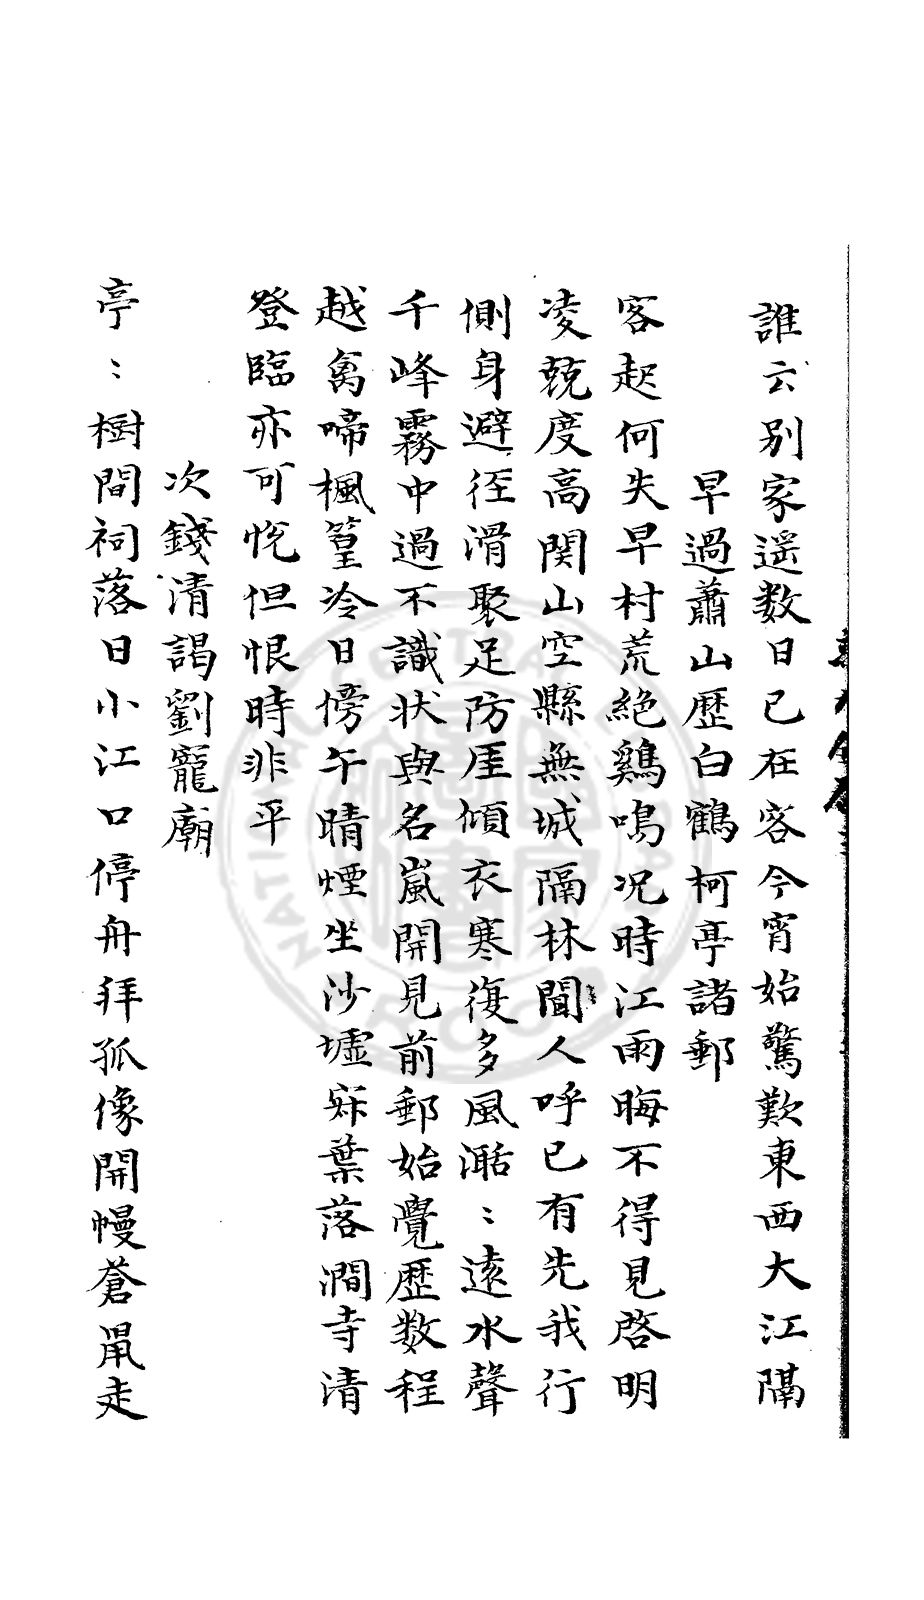 誰云別家遥数日已在客今宵始驚歎東西大江隔
早過蕭山歷白鶴柯亭諸郵
客起何失早村荒絶鷄鳴况時江雨晦不得見啓明
凌兢度高関山空縣無城隔林聞人呼已有先我行
側身避徑滑聚足防厓傾衣寒復多風湉：遠水聲
千峰霧中過不識状與名嵐開見前郵始覺歷数程
越禽啼楓篁冷日傍午晴煙坐沙墟寐葉落澗寺清
登臨亦可悦但恨時非平
次錢清謁劉寵廟
亭：樹間祠落日小江口停舟拜孤像開幔蒼鼠走
NATIONAL CENTRAL LIBRARY